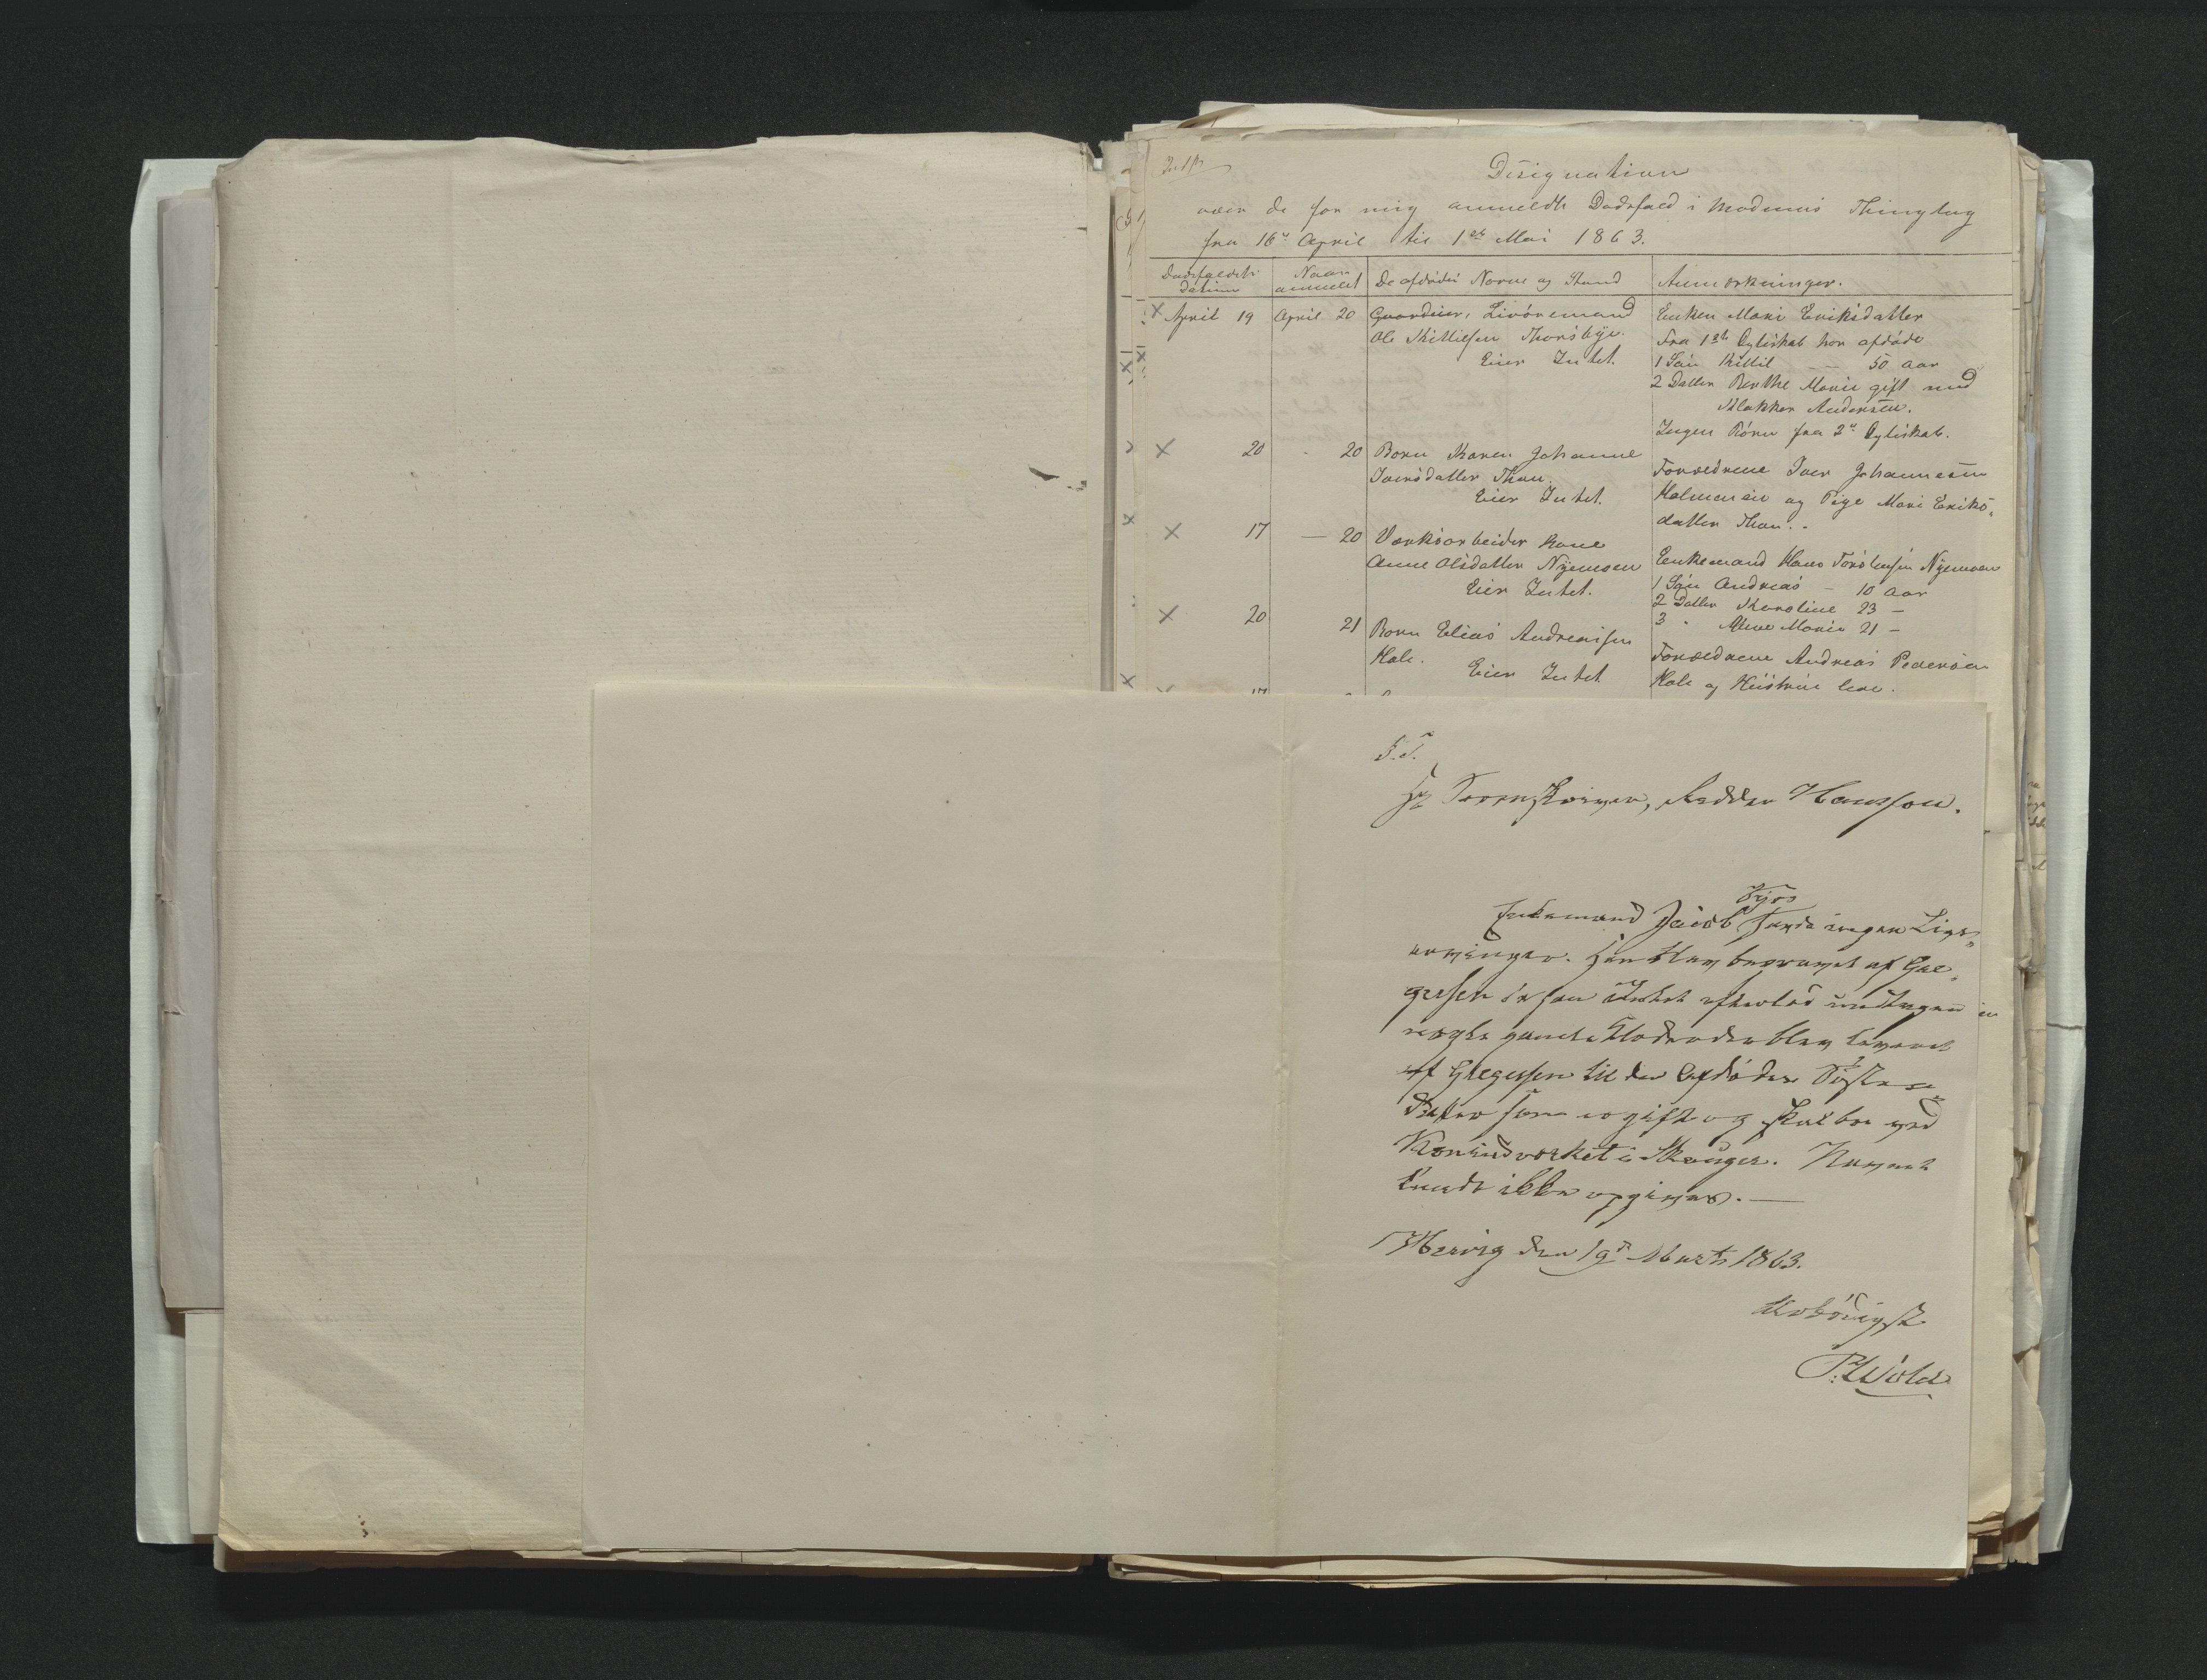 Designation
over de for mig anmeldte Dødsfald i Modums Thinglag
fra 16de April til 1ste Mai 1863.
Dødsfaldets datum
Naar anmeldt
De afdødes Navne og Stand
Anmærkninger.
April 19 April 20 Gaardeier, Livøremand
Ole Kittilsen Thorsbye.
Eier Intet.
Enken Mari Eriksdatter
Fra 1ste Egteskab har afdøde
1 Søn Kittil — 50 Aar
2 Datter Berthe Marie gift med
Klokker Andersen.
Ingen Börn fra 2det Egteskab.
20 - 20 Barn Karen Johanne
Iversdatter Thon.
Eier Intet.
Forældrene Iver Johannesen
Holmen og Pige Mari Eriks-
datter Thon.
17 — 20 Værksarbeider Kone
Anne Olsdatter Nymoen
Eier Intet.
Enkemand Hans Torstensen Nymoen
1 Søn Andreas — 10 Aar
2 Datter Karoline 23 —
3 " Anne Marie 21 —
20 21 Barn Elias Andreasen
Hole.
Eier Intet
Forældrene Andreas Pedersen
Hole og Hustrue leve.
17
S. T.
Hr Sorenskriver, Ridder Hansson.
Enkemand Jacob Fyrs havde ingen Livs-
arvinger. Han blev begravet af Gre-
gersen da han Intet efterlod undtagen en
nogle gamle Klæder der blev leveret
af Gregersen til den Afdødes Søsters
Datter som er gift og skal boe ved
Konnerudværket i Skouger. Navnet
kunde ikke opgives. —
Hervig den 19de Marts 1863.
Ærbødigst
P. Wold